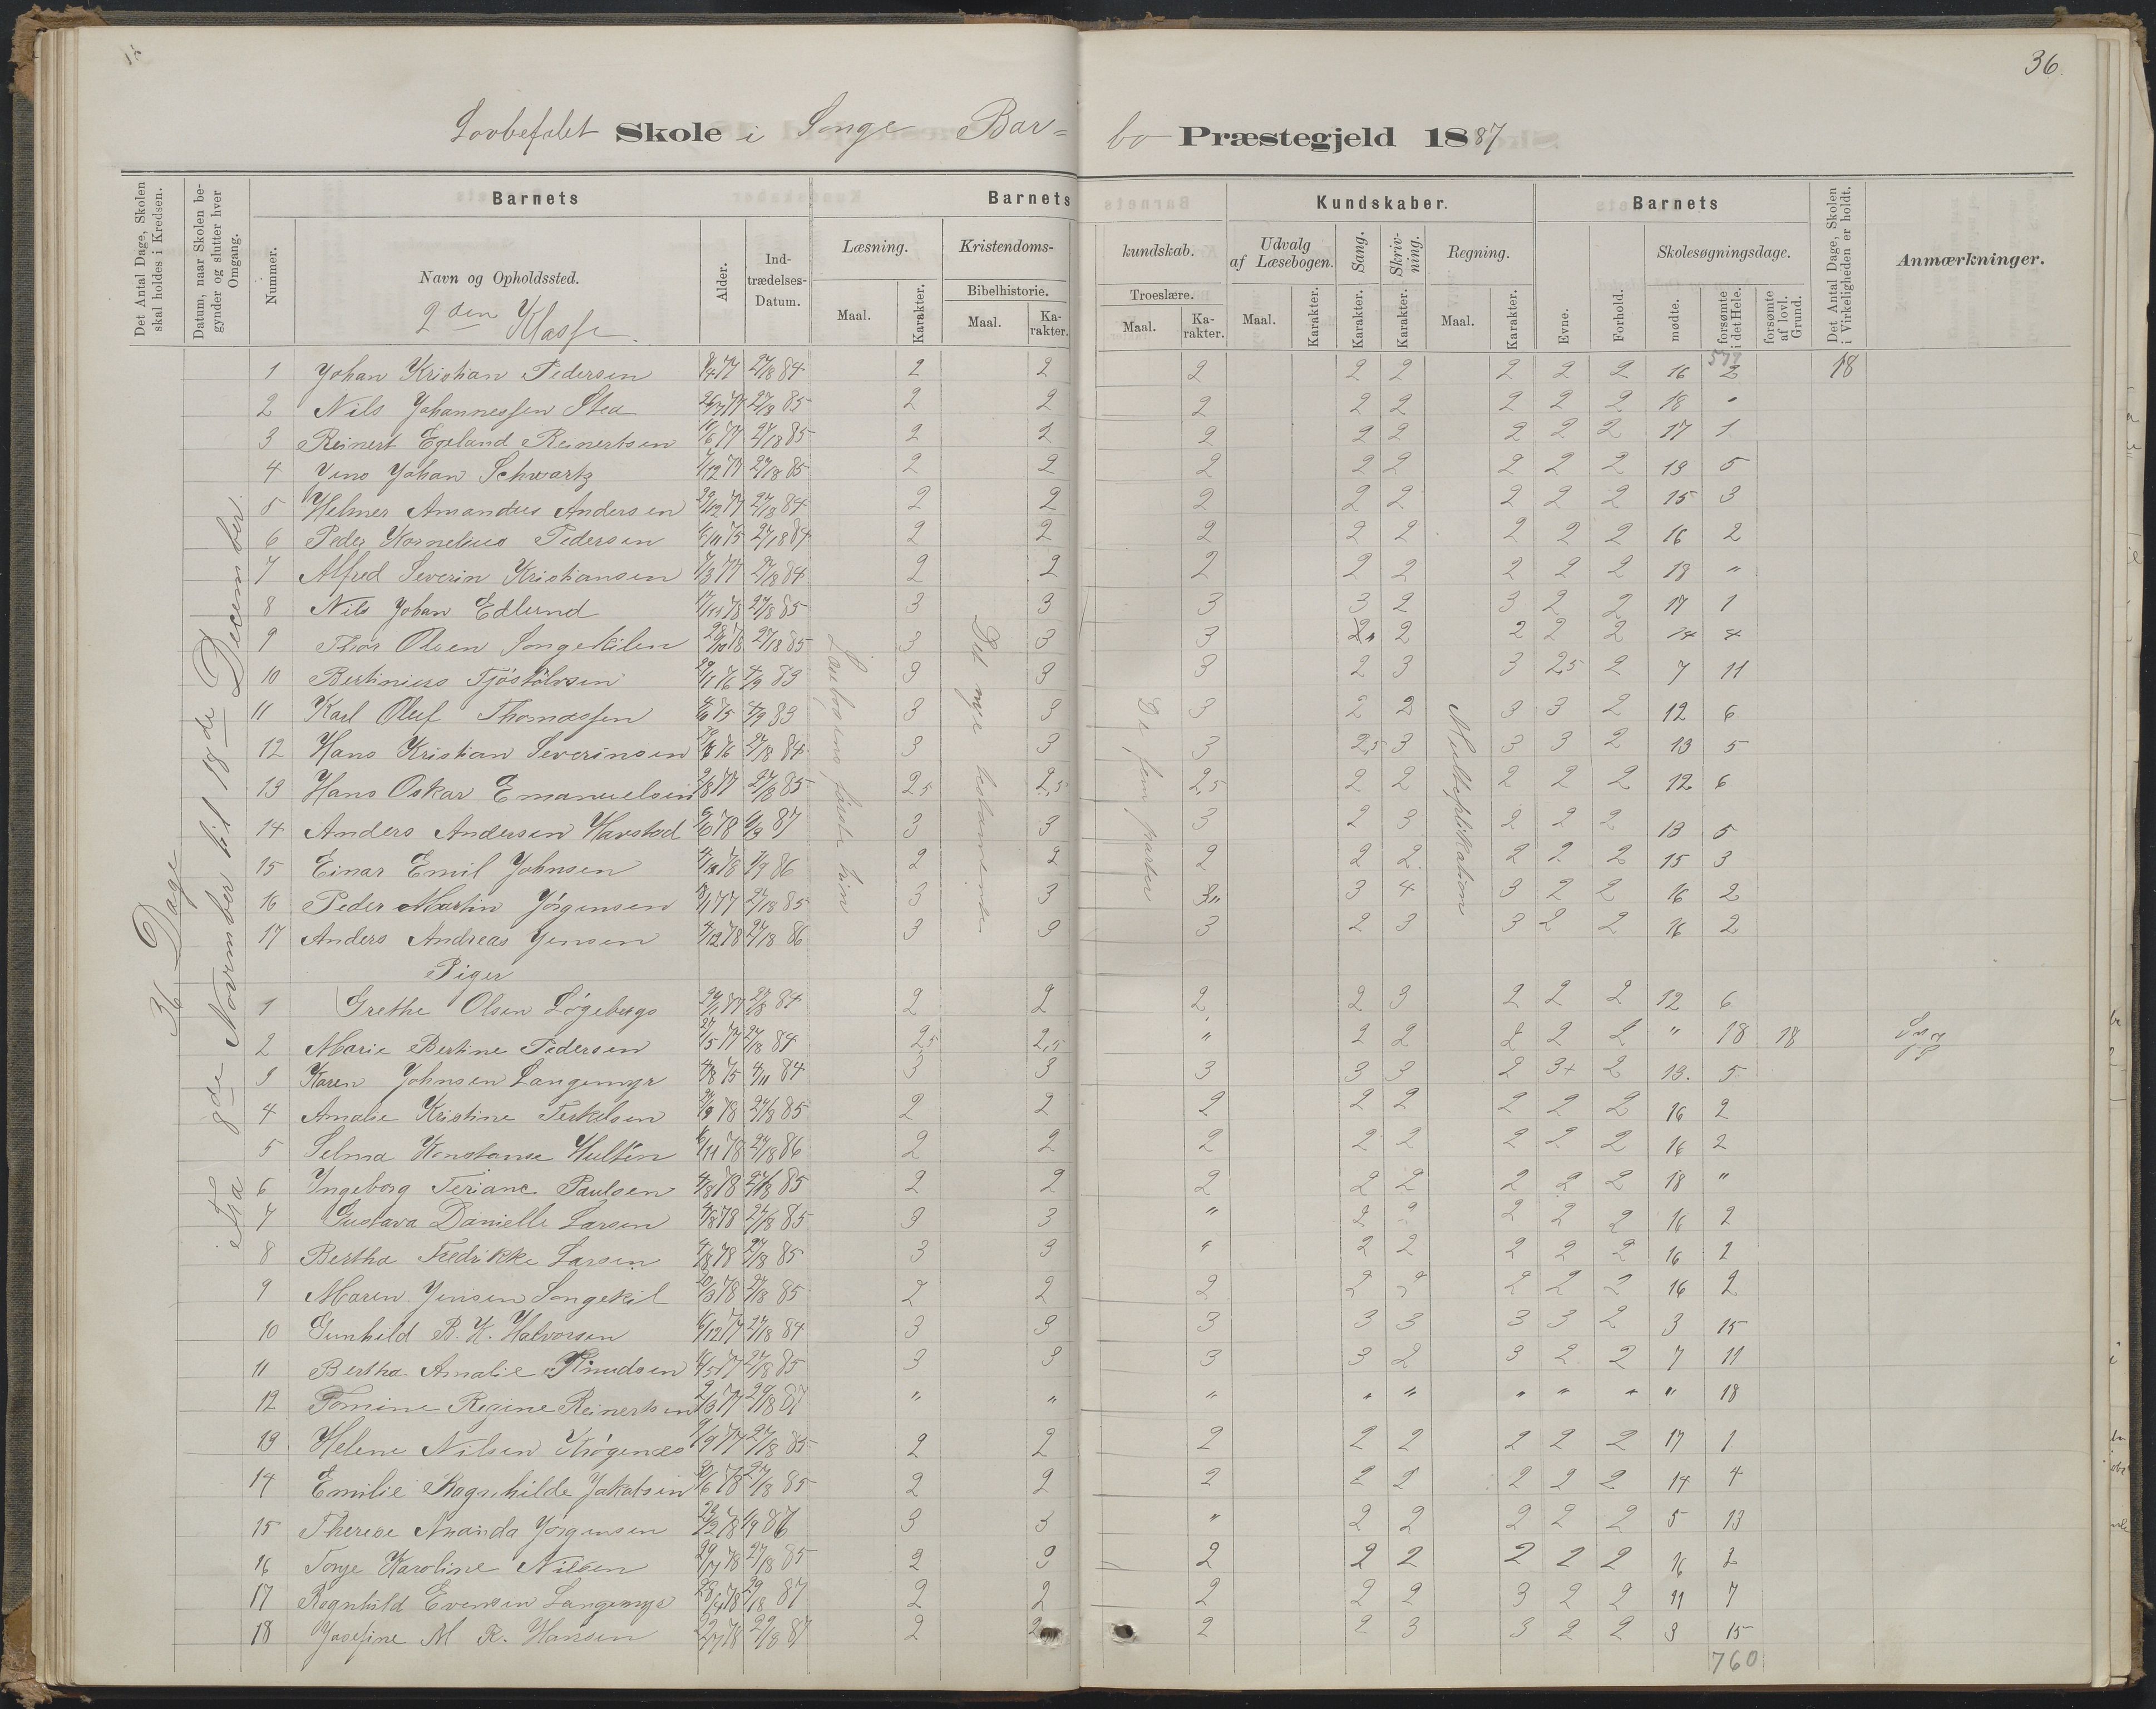 36.
Lovbefalet Skole i Songe Bar=
bo Præstegjeld 1887
Det Antal Dage, Skolen skal holdes i Kredsen.
Datum, naar Skolen begynder og slutter hver Omgang.
Nummer.
Barnets
Navn og Opholdssted.
2den Klasse.
Alder.
Indtrædelses-Datum.
Barnets
Læsning.
Maal.
Karakter.
Kristendoms-
Bibelhistorie.
Maal.
Karakter.
kundskab.
Troeslære.
Maal.
Karakter.
Kundskaber.
Udvalg af Læsebogen.
Maal.
Karakter.
Sang.
Karakter.
Skrivning.
Karakter.
Regning.
Maal.
Karakter.
Barnets
Evne.
Forhold.
Skolesøgningsdage.
mødte.
forsømte i det Hele.
forsømte af lovl. Grund.
Det Antal Dage, Skolen i Virkeligheden er holdt.
Anmærkninger.
36 Dage
Fra 8de November til 18de December.
Det nye testamente
De fem parter
Multiplikation
1 Johan Kristian Pedersen 27/8 84 2 2 2 2 2 2 2 2 16 2 18
2 Nils Johannessen Stea 27/8 85 2 2 2 2 2 2 2 2 18 "
3 Reinert Egeland Reinertsen 27/8 85 2 2 2 2 2 2 2 2 17 1
4 Jens Johan Schwartz 7/12 77 27/8 85 2 2 2 2 2 2 2 2 13 5
5 Helmer Amandus Andersen 27/8 84 2 2 2 2 2 2 2 2 15 3
6 Peder Kornelius Pedersen 27/8 84 2 2 2 2 2 2 2 2 16 2
7 Alfred Severin Kristiansen 27/8 84 2 2 2 2 2 2 2 2 18 "
8 Nils Johan Edlund 27/8 85 3 3 3 3 2 3 2 2 17 1
9 Thor Olsen Songekilen 28/10 78 27/8 85 3 3 3 2 2 2 2 2 14 4
10 Bertinius Tjøstolvsen 4/9 83 3 3 3 2 3 3 2,5 2 7 11
11 Karl Oluf Thomassen 4/9 83 3 3 3 2 2 3 3 2 12 6
12 Hans Kristian Severinsen 27/8 84 3 3 3 2,5 3 3 3 2 13 5
13 Hans Oskar Emanuelsen 27/8 85 2,5 2,5 2,5 2 2 2 2 2 12 6
14 Anders Andersen Harstad 87 3 3 3 2 3 2 2 2 13 5
15 Einar Emil Johnsen 86 2 2 2 2 2 2 2 2 15 3
16 Peder Martin Jørgensen 27/8 85 3 3 3 3 4 3 2 2 16 2
17 Anders Andreas Jensen 27/8 86 3 3 3 2 3 3 2 2 16 2
Piger
1 Grethe Olsen Løgebergs 27/8 84 2 2 2 2 3 2 2 2 12 6
2 Marie Bertine Pedersen 27/5 77 27/8 84 2,5 2,5 " 2 2 2 2 2 " 18 18 Syg
3 Karen Johnsen Langemyr 4/11 84 3 3 3 3 3 2 3+ 2 13. 5
4 Amalie Kristine Terkelsen 27/8 85 2 2 2 2 2 2 2 2 16 2
5 Selma Konstanse Hultén 27/8 86 2 2 2 2 2 2 2 2 16 2
6 Ingeborg Teriane Paulsen 27/8 85 2 2 2 2 2 2 2 2 18 "
7 Gustava Danielle Larsen 27/8 85 3 3 " 2 2 2 2 2 16 2
8 Bertha Fredrikke Larsen 27/8 85 3 3 " 2 2 2 2 2 16 2
9 Maren Jensen Songekil 27/8 85 2 2 2 2 2 2 2 2 16 2
10 Gunhild B. K. Halvorsen 27/8 84 3 3 3 3 3 3 3 2 3 15
11 Bertha Amalie Knudsen 27/8 85 3 3 3 3 2 3 2 2 7 11
12 Tomine Regine Reinertsen 29/8 87 " " " " " " " " " 18
13 Helene Nilsen Krøgenæs 27/8 85 2 2 2 2 2 2 2 2 17 1
14 Emilie Ragnhilde Jakobsen 27/8 85 2 2 2 2 2 2 2 2 14 4
15 Therese Ananda Jørgensen 86 3 3 " 2 2 2 2 2 5 13
16 Torje Karoline Nilsen 27/8 85 2 3 2 2 2 2 2 2 16 2
17 Ragnhild Evensen Langemyr 29/8 87 2 2 2 2 2 3 2 2 11 7
18 Josefine M R. Hansen 29/8 87 2 2 2 2 3 3 2 2 3 15
760